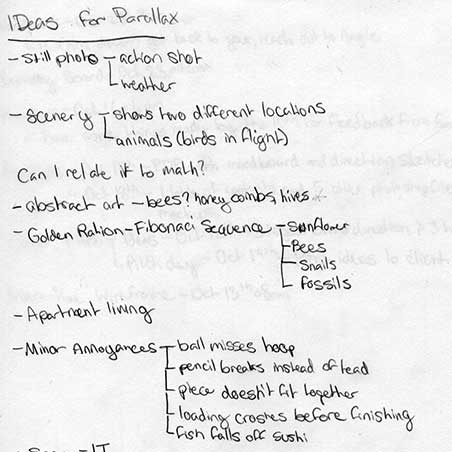 IDeas for Parallax
- Still photo - action shot
- weather
- Scenery - shows two different locations
- animals (birds in flight)
Can I relate it to math?
- abstract art - bees? honey combs, hives
- Golden Ration - Fibonaci Sequence - sunflower
- Bees
- Snails
- fossils
- Apartment living
- Minor Annoyances - ball misses hoop
- pencil breaks instead of lead
- piece doesn't fit together
- loading crashes before finishing
- fish falls off sushi